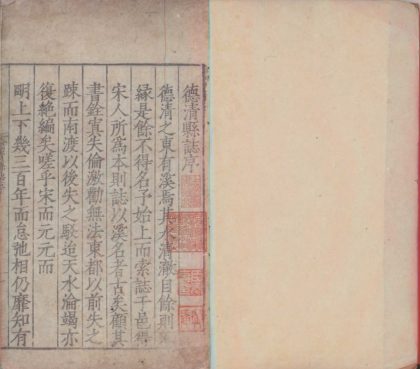 德清縣誌序
德清之東有溪焉其水清澈目餘則
緣是餘不得名予始上而索誌于邑
宋人所爲本則誌以溪名者古矣顧其
書銓寘失倫激勸無法東都以前失之
踈而南渡以後失之駁迨天水淪竭亦
復絶編矣嗟乎宋而元元而
明上下幾三百年而怠弛相仍靡知有